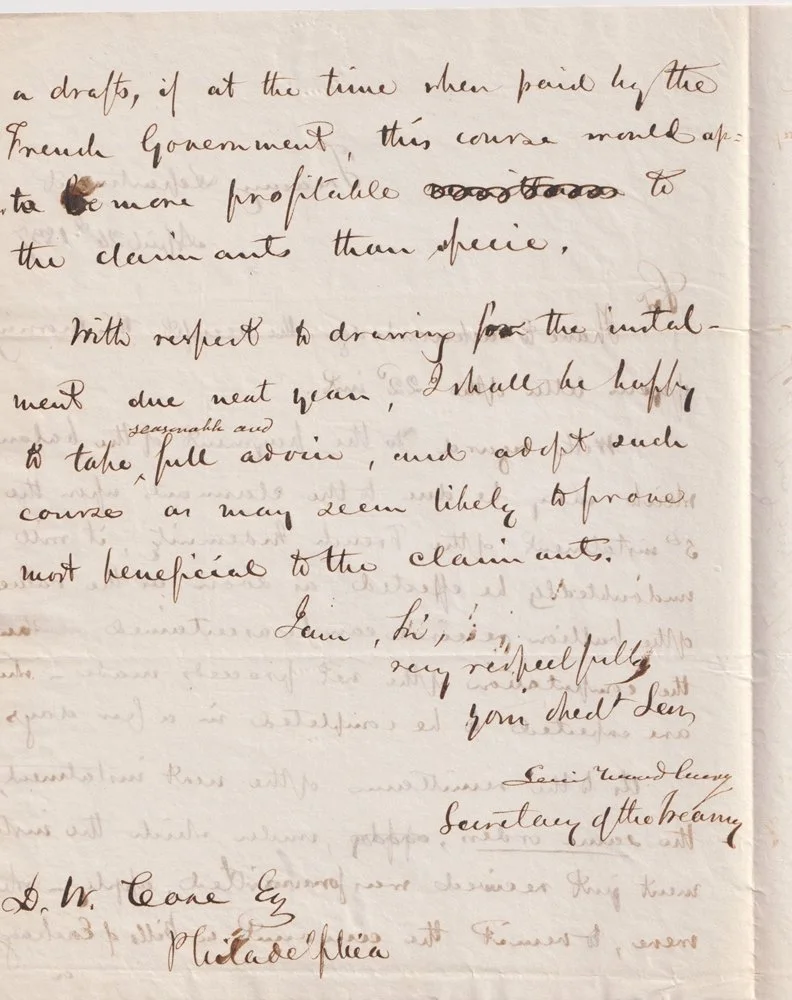 or drafts, if at the time when paid by the
French Government, this course would ap=
to be more profitable to
the claimants than specie.
With respect to drawing for the instal-
ment due next year, I shall be happy
seasonable and
to take full advice, and adopt such
course as may seem likely to prove
most beneficial to the claimants.
I am, Sir,
very respectfully
your obedt Ser
Levi Woodbury
Secretary of the Treasury
D. W. Coxe Esq
Philadelphia